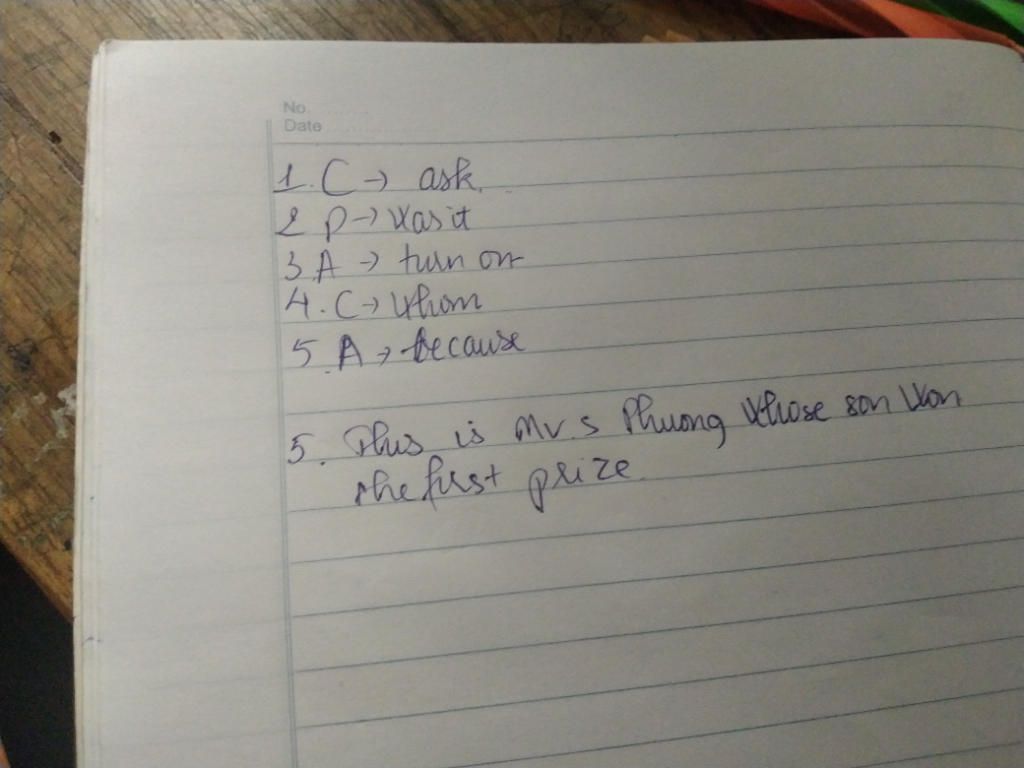 No.
Date
1. C → ask.
2 D → was it
3 A → turn on
4. C → whom
5. A → because
5. This is Mrs Phuong whose son won
the first prize.